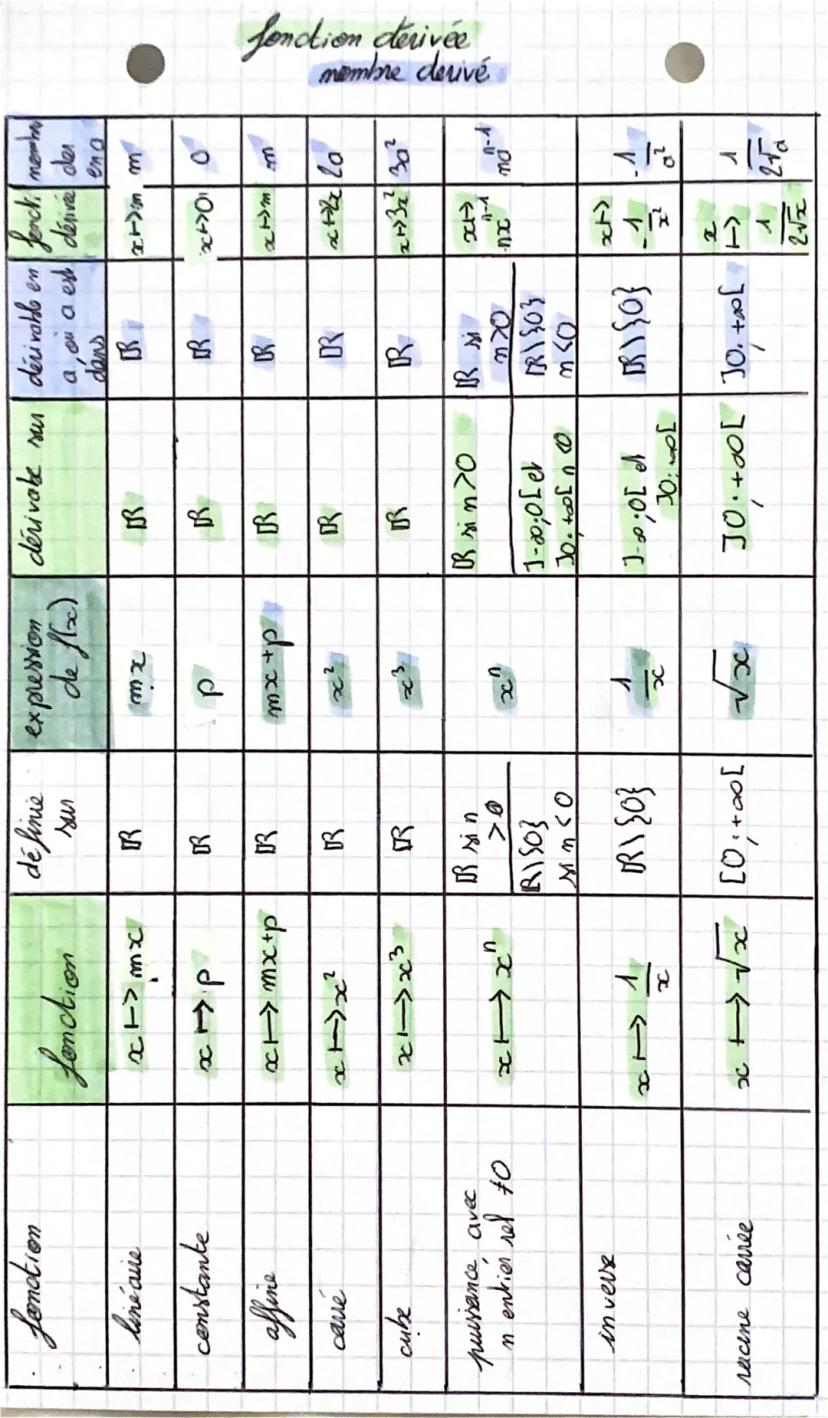 fonction dérivée
nombre derivé
fonction
fonction
définie sur
expression de f(x)
dérivable sur
dérivable en a, où a est dans
foncti dérivé
nombre der en a
linéaire
x ↦ mx
ℝ
mx
ℝ
ℝ
x ↦ m
m
constante
x ↦ p
ℝ
p
ℝ
ℝ
x ↦ 0
0
affine
x ↦ mx+p
ℝ
mx+p
ℝ
ℝ
x ↦ m
m
carré
x ↦ x²
ℝ
x²
ℝ
ℝ
x ↦ 2x
2a
cube
x ↦ x³
ℝ
x³
ℝ
ℝ
x ↦ 3x²
3a²
puissance avec
n entier rel ≠0
x ↦ xⁿ
ℝ si n
>0
ℝ\{0}
si n<0
xⁿ
ℝ si n>0
]-∞;0[ et
]0;+∞[ n<0
ℝ si
n>0
ℝ\{0}
n<0
x ↦
nxⁿ⁻¹
naⁿ⁻¹
inverse
x ↦ 1/x
ℝ\{0}
1/x
]-∞;0[ et
]0;+∞[
ℝ\{0}
x ↦
-1/x²
-1/a²
racine carrée
x ↦ √x
[0;+∞[
√x
]0;+∞[
]0;+∞[
x
↦
1/2√x
1/2√a